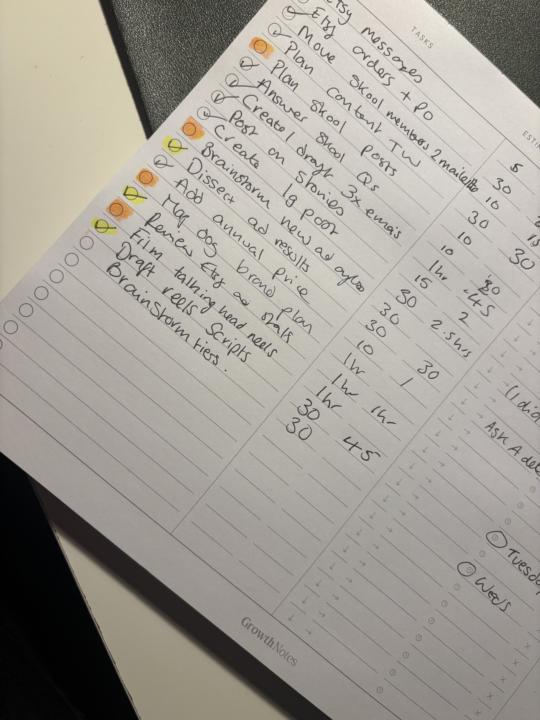 TASKS
Etsy messages
Etsy orders + PO
Move skool members 2 mailerlite
Plan content TW
Plan skool posts
Answer skool Qs
Create/draft 3x emails
Post on stories
Create ig post
Brainstorm new ad styles
Dissect ad results
Add annual price
Mgg dog brand plan
Review Etsy ad stats
Film talking head reels
Draft reels scripts
Brainstorm tiers.
5
30
10
30
10 30
10
1hr 30
15 45
30 2
30 2.5hrs
10
1hr 30
1hr 1
1hr 1hr
30
30 45
Ask A
Tuesday
Weds
GrowthNotes